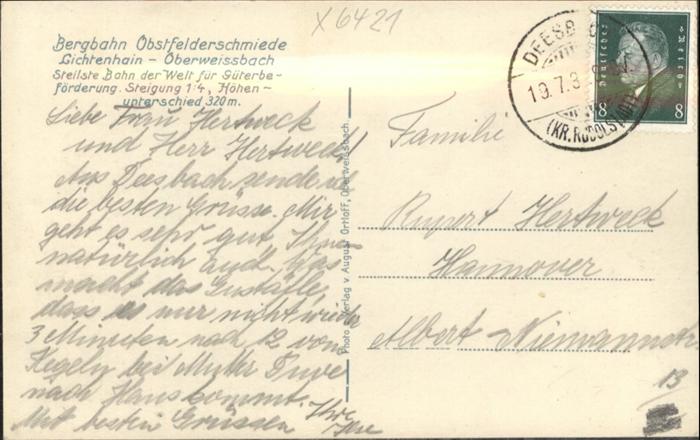 X6421
Bergbahn Obstfelderschmiede
Lichtenhain – Oberweissbach
Steilste Bahn der Welt für Güterbe-
förderung. Steigung 1:4, Höhen-
unterschied 320 m.
Liebe Frau Hertweck
und Herr Hertweck!
Aus Deesbach sende ich
die besten Grüsse. Mir
geht es sehr gut Ihnen
natürlich auch. Was
macht das
dass es nur nicht wieder
3 Minuten nach 12 vom
Kegeln bei Mutter Duve
nach Haus kommt.
Mit besten Grüssen Ihre
Ilse
Photo u. Verlag v. August Ortloff, Oberweissbach
DEESBACH
19.7.3
(KR. RUDOLSTADT)
Deutsches Reich
8 8
Familie
Rupert Hertweck
Hannover
Albert Niemannstr
13